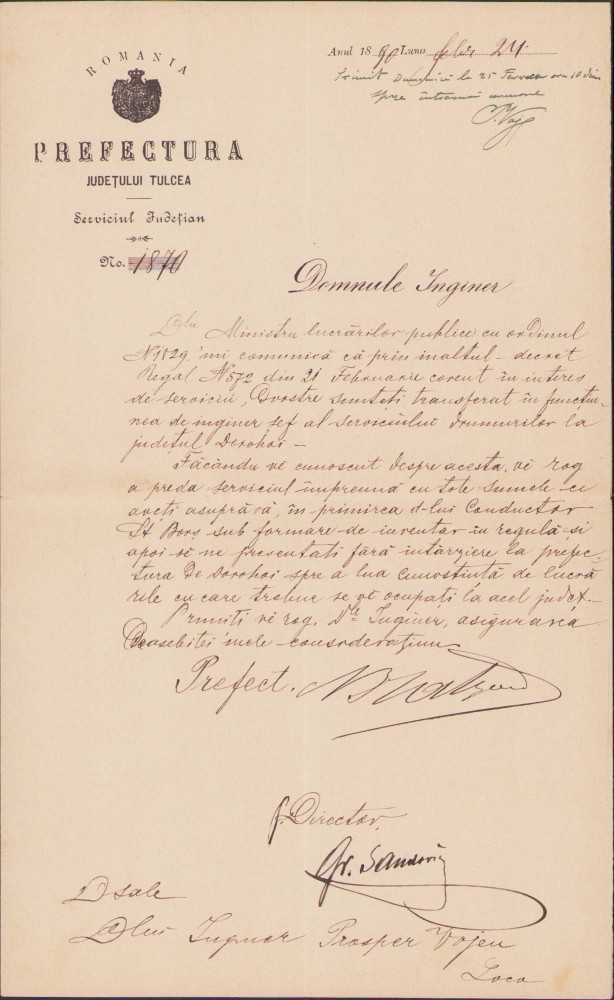 ROMANIA
PREFECTURA
JUDEȚULUI TULCEA
Serviciul Județian
No. 1870
Anul 1890 Luna febr 24
Primit Duminică la 25 ora 10 dim
spre
Domnule Inginer
Dlu Ministru lucrărilor publice cu ordinul
N 1829 'mi comunică că prin inaltul decret
Regal N 572 din 21 Februarie corent în interes
de serviciu, Dvostre sunteți transferat în funcțiu-
nea de inginer șef al serviciului drumurilor la
județul Dorohoi –
Făcându vĕ cunoscut despre acesta, vĕ rog
a preda serviciul împreună cu tote sumele ce
aveți asupră vă, în primirea d-lui Conductor
St Borș sub formare de inventar în regulă și
apoi sĕ ne presentați fără intârziere la prefec-
tura de Dorohoi spre a lua cunoștință de lucră
rile cu care trebue se vĕ ocupați la acel județ. –
Primiți vĕ rog, Dle Inginer, asigurarea
Deosebitei mele consideratiuni
Prefect,
p. Director,
Gr. Sandovici
Dsale
Dlui Inginer Prosper Vojeu
Loco